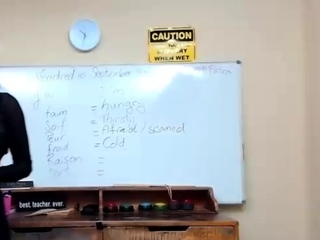 CAUTION
SLIPPERY
WHEN WET
Vendredi 10 September
faim = hungry
Soif = Thirsty
Peur = Afraid / scared
froid = Cold
Raison =
=
best. teacher. ever.